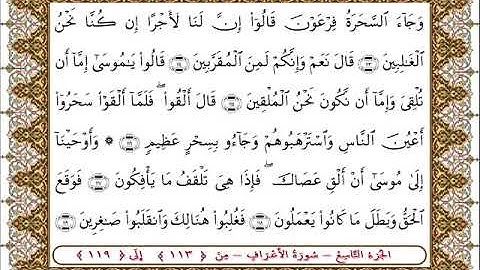 وَجَآءَ ٱلسَّحَرَةُ فِرْعَوْنَ قَالُوٓا۟ إِنَّ لَنَا لَأَجْرًا إِن كُنَّا نَحْنُ
ٱلْغَـٰلِبِينَ ﴿١١٣﴾ قَالَ نَعَمْ وَإِنَّكُمْ لَمِنَ ٱلْمُقَرَّبِينَ ﴿١١٤﴾ قَالُوا۟ يَـٰمُوسَىٰٓ إِمَّآ أَن
تُلْقِىَ وَإِمَّآ أَن نَّكُونَ نَحْنُ ٱلْمُلْقِينَ ﴿١١٥﴾ قَالَ أَلْقُوا۟ ۖ فَلَمَّآ أَلْقَوْا۟ سَحَرُوٓا۟
أَعْيُنَ ٱلنَّاسِ وَٱسْتَرْهَبُوهُمْ وَجَآءُو بِسِحْرٍ عَظِيمٍ ﴿١١٦﴾ ۞ وَأَوْحَيْنَآ
إِلَىٰ مُوسَىٰٓ أَنْ أَلْقِ عَصَاكَ ۖ فَإِذَا هِىَ تَلْقَفُ مَا يَأْفِكُونَ ﴿١١٧﴾ فَوَقَعَ
ٱلْحَقُّ وَبَطَلَ مَا كَانُوا۟ يَعْمَلُونَ ﴿١١٨﴾ فَغُلِبُوا۟ هُنَالِكَ وَٱنقَلَبُوا۟ صَـٰغِرِينَ ﴿١١٩﴾
الجزء التاسع - سورة الأعراف - من ﴿ ١١٣ ﴾ إلى ﴿ ١١٩ ﴾